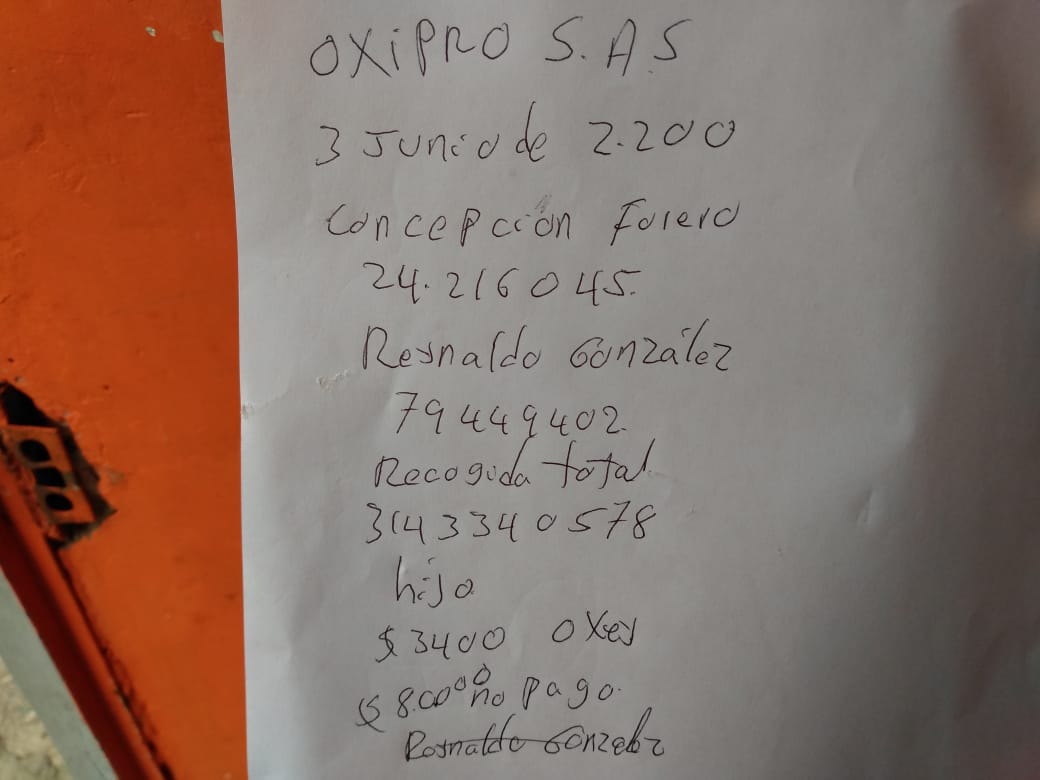 OXiPRO S.A.S
3 Junio de 2.200
Concepción Forero
24.216045.
Reynaldo González
79449402.
Recogida total
3143340578
hijo
$ 3400 oxey
$ 8.000 no pago.
Reynaldo Gonzalez